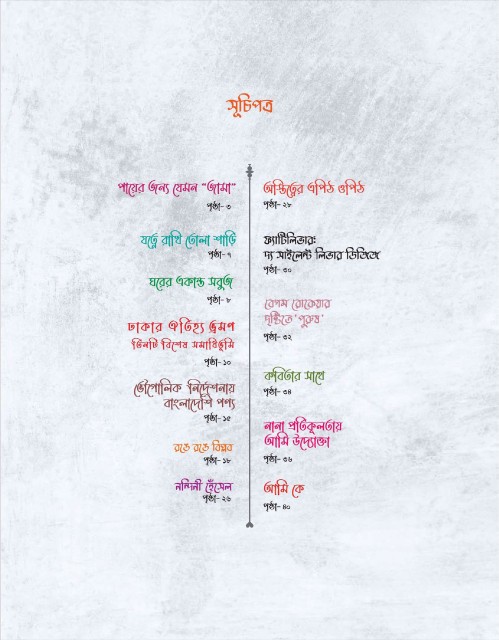 সূচিপত্র
পায়ের জন্য যেমন “জামা”
পৃষ্ঠা- ৩
যত্নে রাখি তোলা শাড়ি
পৃষ্ঠা- ৭
ঘরের একান্ত সবুজ
পৃষ্ঠা- ৮
ঢাকার ঐতিহ্য ভ্রমণ
তিনটি বিশেষ সমাধিভূমি
পৃষ্ঠা- ১০
ভৌগোলিক নির্দেশনায়
বাংলাদেশি পণ্য
পৃষ্ঠা- ১৫
রঙে রঙে বিপ্লব
পৃষ্ঠা- ১৮
নন্দিনী হেঁসেল
পৃষ্ঠা- ২৬
অস্তিত্বের এপিঠ ওপিঠ
পৃষ্ঠা- ২৮
ফ্যাটিলিভার:
দ্য সাইলেন্ট লিভার ডিজিজ
পৃষ্ঠা- ৩০
বেগম রোকেয়ার
দৃষ্টিতে ‘পুরুষ’
পৃষ্ঠা- ৩২
কবিতার সাথে
পৃষ্ঠা- ৩৪
নানা প্রতিকূলতায়
আমি উদ্যোক্তা
পৃষ্ঠা- ৩৬
আমি কে
পৃষ্ঠা- ৪০